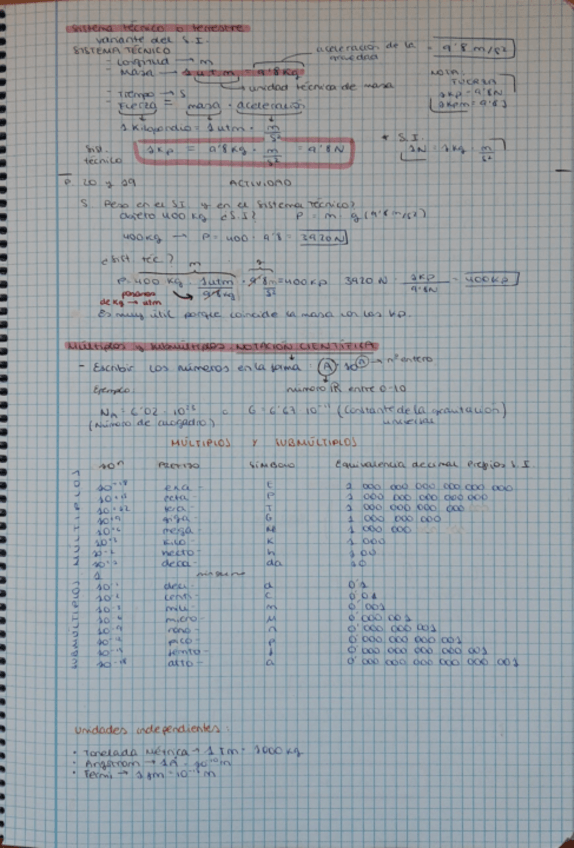 Sistema técnico o terrestre
variante del S.I.
SISTEMA TÉCNICO
- Longitud → m
- Masa → 1 u.t.m = 9'8 kg
aceleración de la gravedad = 9'8 m/s²
unidad técnica de masa
- Tiempo → s
- Fuerza = masa · aceleración
1 Kilopondio = 1utm · m/s²
NOTA:
1kp = 9'8N
Sis. técnico
1kp = 9'8 kg · m/s² = 9'8 N
* S.I.
1N = 1kg · m/s²
P. 20 y 29
ACTIVIDAD
5. Peso en el SI y en el sistema técnico?
objeto 400 kg ¿S.I? P = m · g (9'8 m/s²)
400kg → P = 400 · 9'8 = 3920N
¿Sist. téc.?
m g
P = 400 kg · 1utm/9'8kg · 9'8 m/s² = 400kp 3920N · 1kp/9'8N = 400kp
pasamos de kg → utm
Es muy útil porque coincide la masa con los kp.
Múltiplos y submúltiplos NOTACIÓN CIENTÍFICA
- Escribir los números en la forma: A · 10ⁿ → nº entero
número ℝ entre 0-10
Ejemplo:
(Número de avogadro)
(Constante de la gravitación universal)
MÚLTIPLOS Y SUBMÚLTIPLOS
10ⁿ PREFIJO SÍMBOLO Equivalencia decimal Prefijos S.I
MÚLTIPLOS
exa - E 1 000 000 000 000 000 000
peta - P 1 000 000 000 000 000
tera - T 1 000 000 000 000
giga - G 1 000 000 000
mega - M 1 000 000
kilo - K 1 000
hecto - h 100
deca - da 10
1 ninguno
SUBMÚLTIPLOS
deci - d 0'1
centi - c 0'01
mili - m 0'001
micro - μ 0'000 001
nano - n 0'000 000 001
pico - p 0'000 000 000 001
femto - f 0'000 000 000 000 001
atto - a 0'000 000 000 000 000 001
Unidades independientes:
· Tonelada Métrica → 1 Tm = 1000 kg
· Angstrom → 1Å = 10⁻¹⁰m
· Fermi → 1fm = 10⁻¹⁵ m